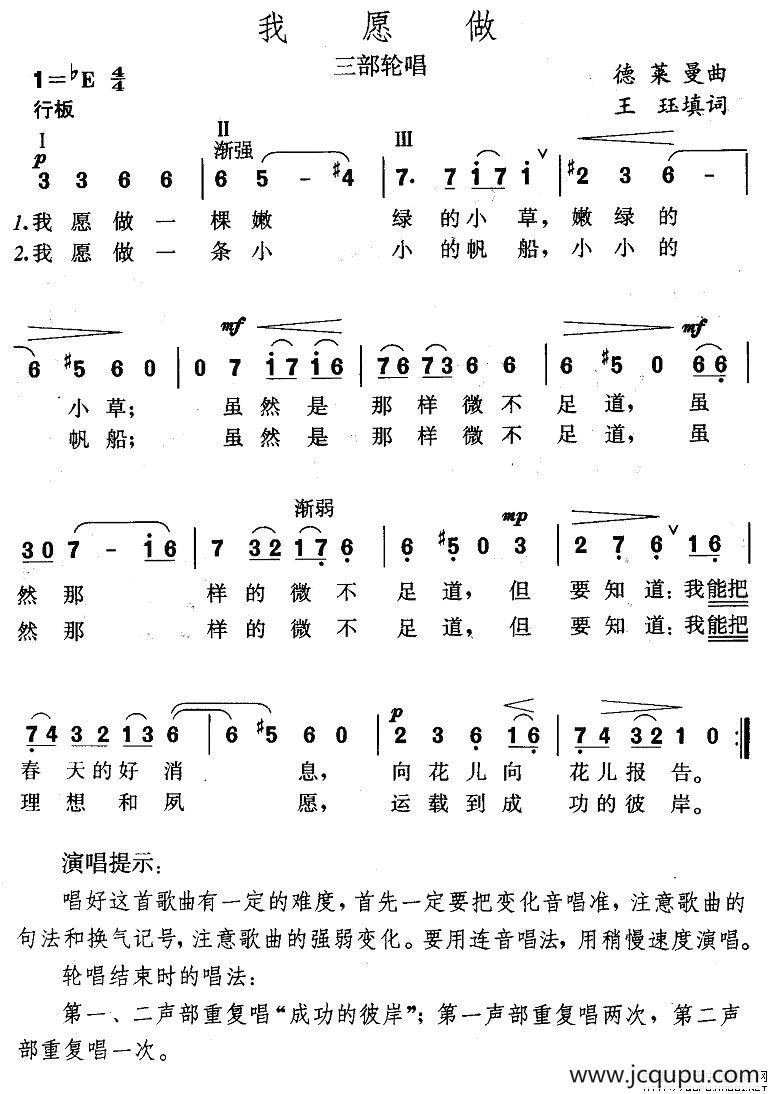 我愿做
三部轮唱
1=♭E 4/4
德莱曼曲
行板
王珏填词
Ⅰ Ⅱ Ⅲ
p 渐强
3 3 6 6 | 6 5 - #4 | 7. 7 i 7 i ∨ | #2 3 6 - |
1.我愿做一 棵嫩 绿的小草，嫩绿的
2.我愿做一 条小 小的帆船，小小的
mf mf
6 #5 6 0 | 0 7 i 7 i 6 | 7 6 7 3 6 6 | 6 #5 0 6 6 |
小草； 虽然是 那样微不 足道，虽
帆船； 虽然是 那样微不 足道，虽
渐弱 mp
3 0 7 - i 6 | 7 3 2 1 7 6 | 6 #5 0 3 | 2 7 6 ∨ 1 6 |
然那 样的微不 足道，但 要知道：我能把
然那 样的微不 足道，但 要知道：我能把
p
7 4 3 2 1 3 6 | 6 #5 6 0 | 2 3 6 1 6 | 7 4 3 2 1 0 :‖
春天的好消 息， 向花儿向 花儿报告。
理想和夙 愿， 运载到成 功的彼岸。
演唱提示：
唱好这首歌曲有一定的难度，首先一定要把变化音唱准，注意歌曲的
句法和换气记号，注意歌曲的强弱变化。要用连音唱法，用稍慢速度演唱。
轮唱结束时的唱法：
第一、二声部重复唱“成功的彼岸”；第一声部重复唱两次，第二声
部重复唱一次。
www.jcqupu.com